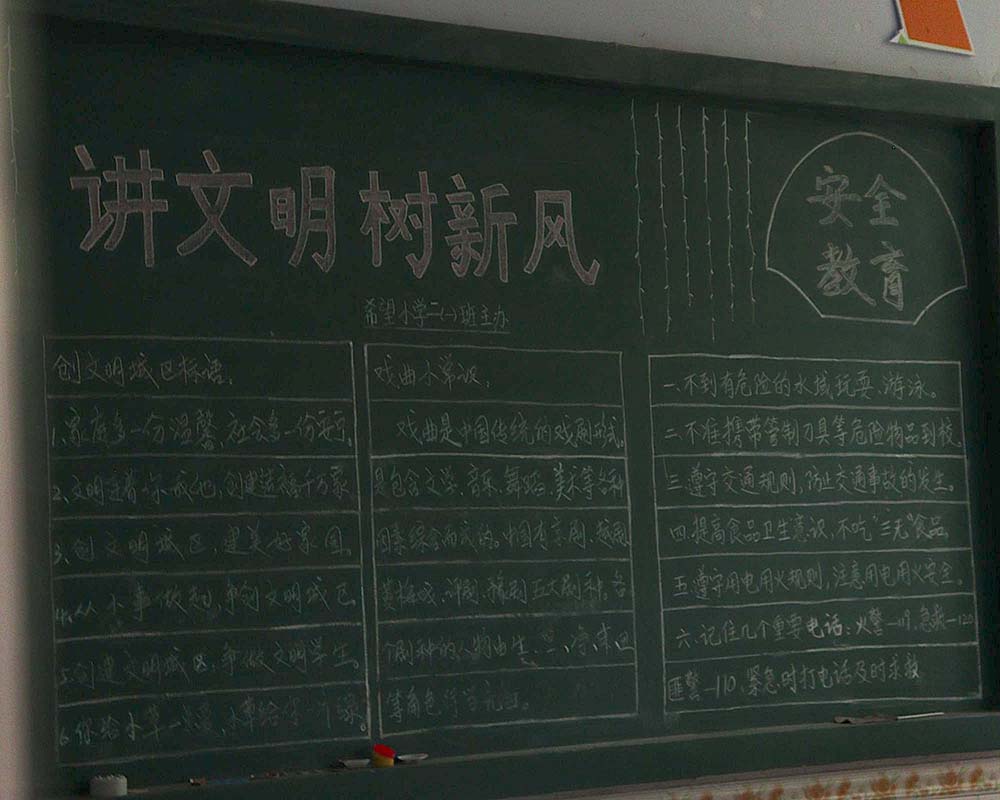 讲文明树新风
希望小学二(一)班主办
安全
教育
创文明城区标语:
1、家庭多一份温馨,社会多一份
2、文明连着你我他,创建造福千万家
3、创文明城区,建美好家园
4、从小事做起,争创文明城区
5、创建文明城区,争做文明学生。
6、你给小草一点爱,小草给你一个
戏曲小常识:
戏曲是中国传统的戏剧形式。
是包含文学、音乐、舞蹈、美术等各种
因素综合而成的。中国有京剧、越剧
黄梅戏、评剧、豫剧五大剧种。各
个剧种的人物由生、旦、净、末、丑
等角色行当
一.不到有危险的水域玩耍、游泳。
二.不准携带管制刀具等危险物品到校.
三.遵守交通规则,防止交通事故的发生。
四.提高食品卫生意识,不吃“三无”食品.
五.遵守用电用火规则,注意用电用火安全。
六.记住几个重要电话:火警—119.急救—120
匪警—110.紧急时打电话及时求救